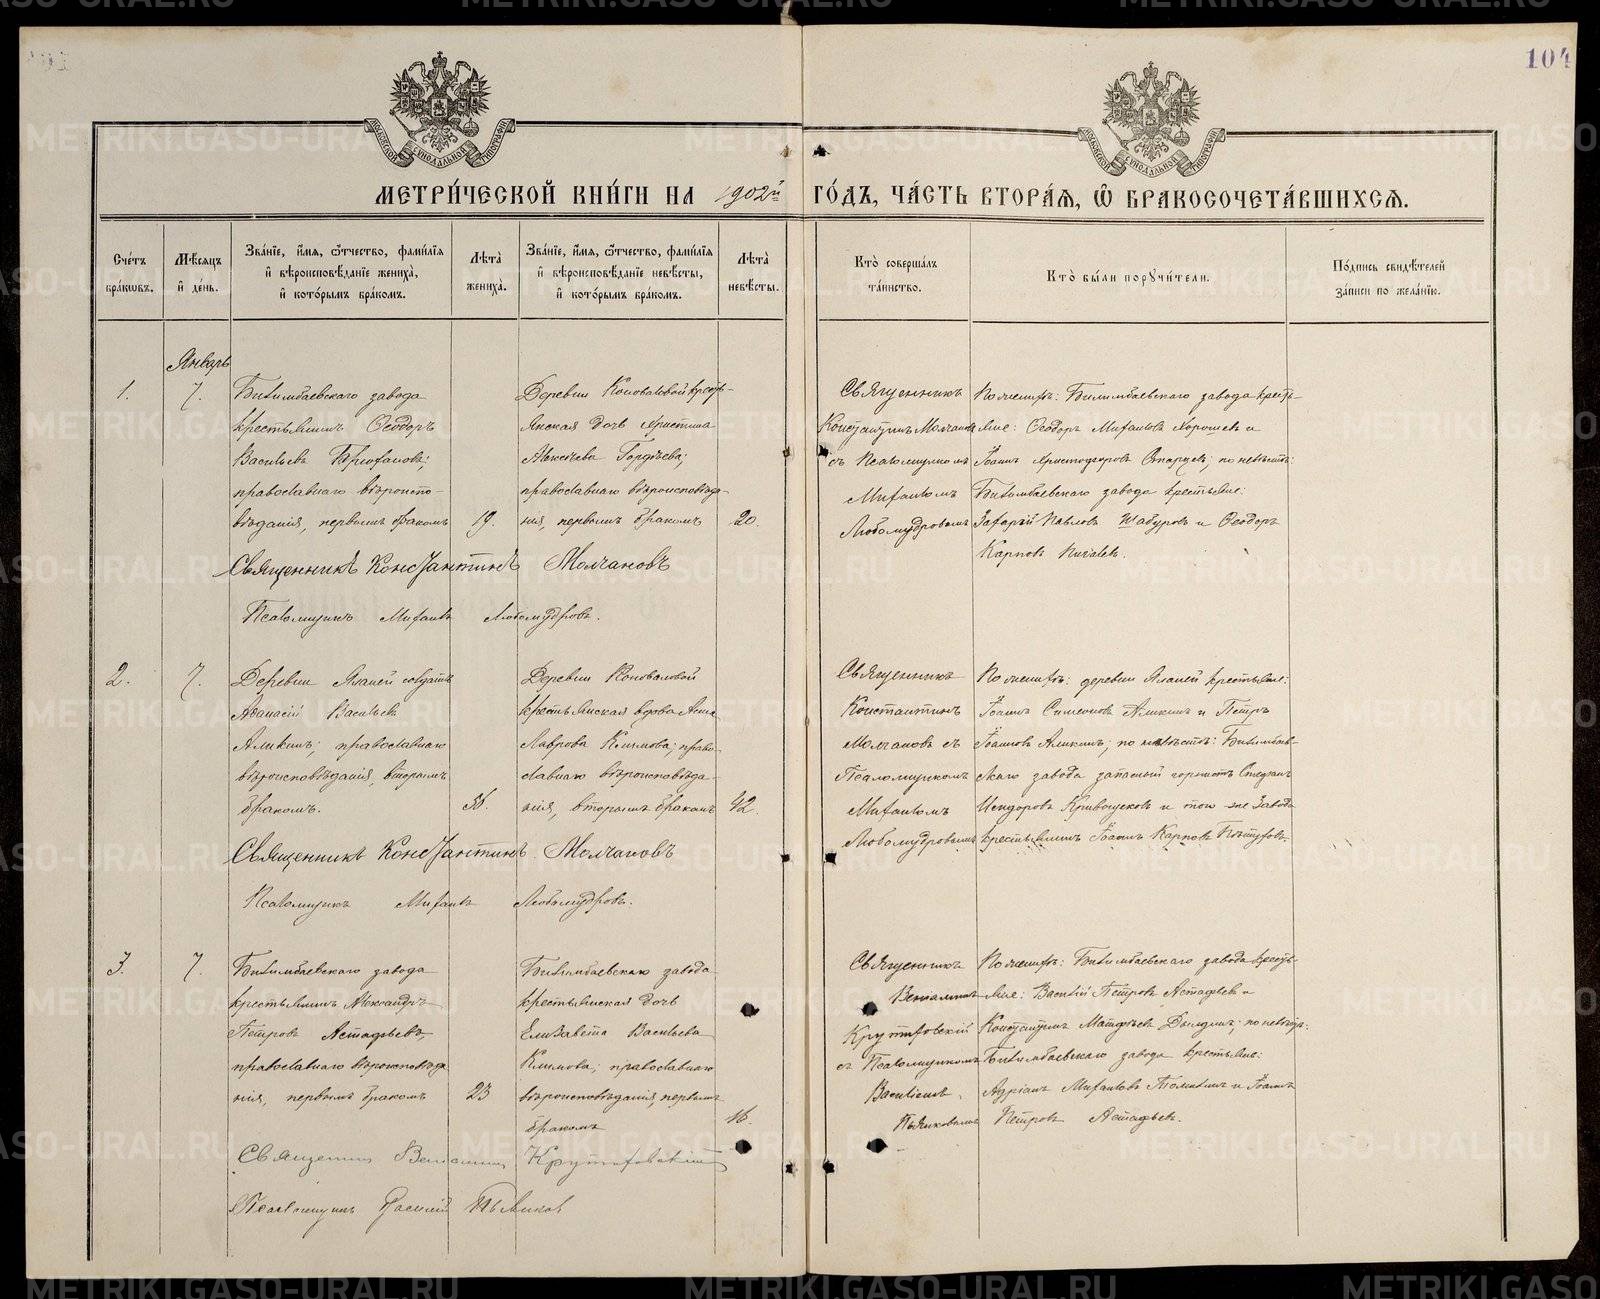 104
МОСКОВСКОЙ СѴНОДАЛЬНОЙ ТИПОГРАФІИ
МОСКОВСКОЙ СѴНОДАЛЬНОЙ ТИПОГРАФІИ
МЕТРИ́ЧЕСКОЙ КНИ́ГИ НА 1902й ГО́ДЪ, ЧА́СТЬ ВТОРА́Ѧ, Ѿ БРАКОСОЧЕТА́ВШИХСѦ.
Сче́тъ бра́кѡвъ.
Мѣ́сяцъ и́ де́нь.
Зва́нїе, и́мѧ, ѻ҆́тчество, фами́лїѧ и҆ вѣроисповѣ́данїе жениха̀, и҆ кото́рымъ бра́комъ.
Лѣ́та жениха̀.
Зва́нїе, и́мѧ, ѻ҆́тчество, фами́лїѧ и҆ вѣроисповѣ́данїе невѣ́сты, и҆ кото́рымъ бра́комъ.
Лѣ́та невѣ́сты.
Кто̀ соверша́лъ та́инство.
Кто̀ бы́ли порꙋчи́тели.
По́дпись свидѣ́телей за́писи по жела́нїю.
Январь
1.
7.
Билимбаевскаго завода
крестьянинъ Ѳеодоръ
Васильевъ
православнаго вѣроиспо-
вѣданія, первымъ бракомъ
19.
Деревни Коноваловой кресть-
янская дочь Христина
Алексѣева Гордѣева;
православнаго вѣроисповѣда-
нія, первымъ бракомъ
20.
Священникъ
Константинъ Молчановъ
съ Псаломщикомъ
Михаиломъ
Любомудровымъ
По женихѣ: Билимбаевскаго завода кресть-
яне: Ѳеодоръ Михаиловъ Хорошевъ и
Іоаннъ Христофоровъ Старцевъ; по невѣстѣ:
Билимбаевскаго завода крестьяне:
Захарій Павловъ Шабуровъ и Ѳеодоръ
Карповъ
Священникъ Константинъ Молчановъ
Псаломщикъ Михаилъ Любомудровъ.
2.
7.
Деревни солдатъ
Аѳанасій Васильевъ
Аликинъ; православнаго
вѣроисповѣданія, вторымъ
бракомъ.
Деревни Коноваловой
крестьянская вдова Анна
Лаврова Климова; право-
славнаго вѣроисповѣда-
нія, вторымъ бракомъ
42.
Священникъ
Константинъ
Молчановъ съ
Псаломщикомъ
Михаиломъ
Любомудровымъ
По женихѣ: деревни крестьяне:
Іоаннъ Симеоновъ Аликинъ и Петръ
Іоанновъ Аликинъ; по невѣстѣ: Билимбаев-
скаго завода запасный горнистъ Стефанъ
Исидоровъ Кривощековъ и того же завода
крестьянинъ Іоаннъ Карповъ Пѣтуховъ.
Священникъ Константинъ Молчановъ
Псаломщикъ Михаилъ Любомудровъ.
3.
7.
Билимбаевскаго завода
крестьянинъ Александръ
Петровъ Астафьевъ,
православнаго вѣроисповѣда-
нія, первымъ бракомъ
23
Билимбаевскаго завода
крестьянская дочь
Елизавета Васильева
Климова; православнаго
вѣроисповѣданія, первымъ
бракомъ
16.
Священникъ
Веніаминъ
Крутиховскій
съ Псаломщикомъ
Василіемъ
Пьянковымъ
По женихѣ: Билимбаевскаго завода кресть-
яне: Василій Петровъ Астафьевъ и
Константинъ Матѳѣевъ Дылдинъ; по невѣстѣ:
Билимбаевскаго завода крестьяне:
Адріанъ Михаиловъ и Іоаннъ
Петровъ Астафьевъ.
Священникъ Веніаминъ Крутиховскій
Псаломщикъ Василій Пьянковъ
METRIKI.GASO-URAL.RU